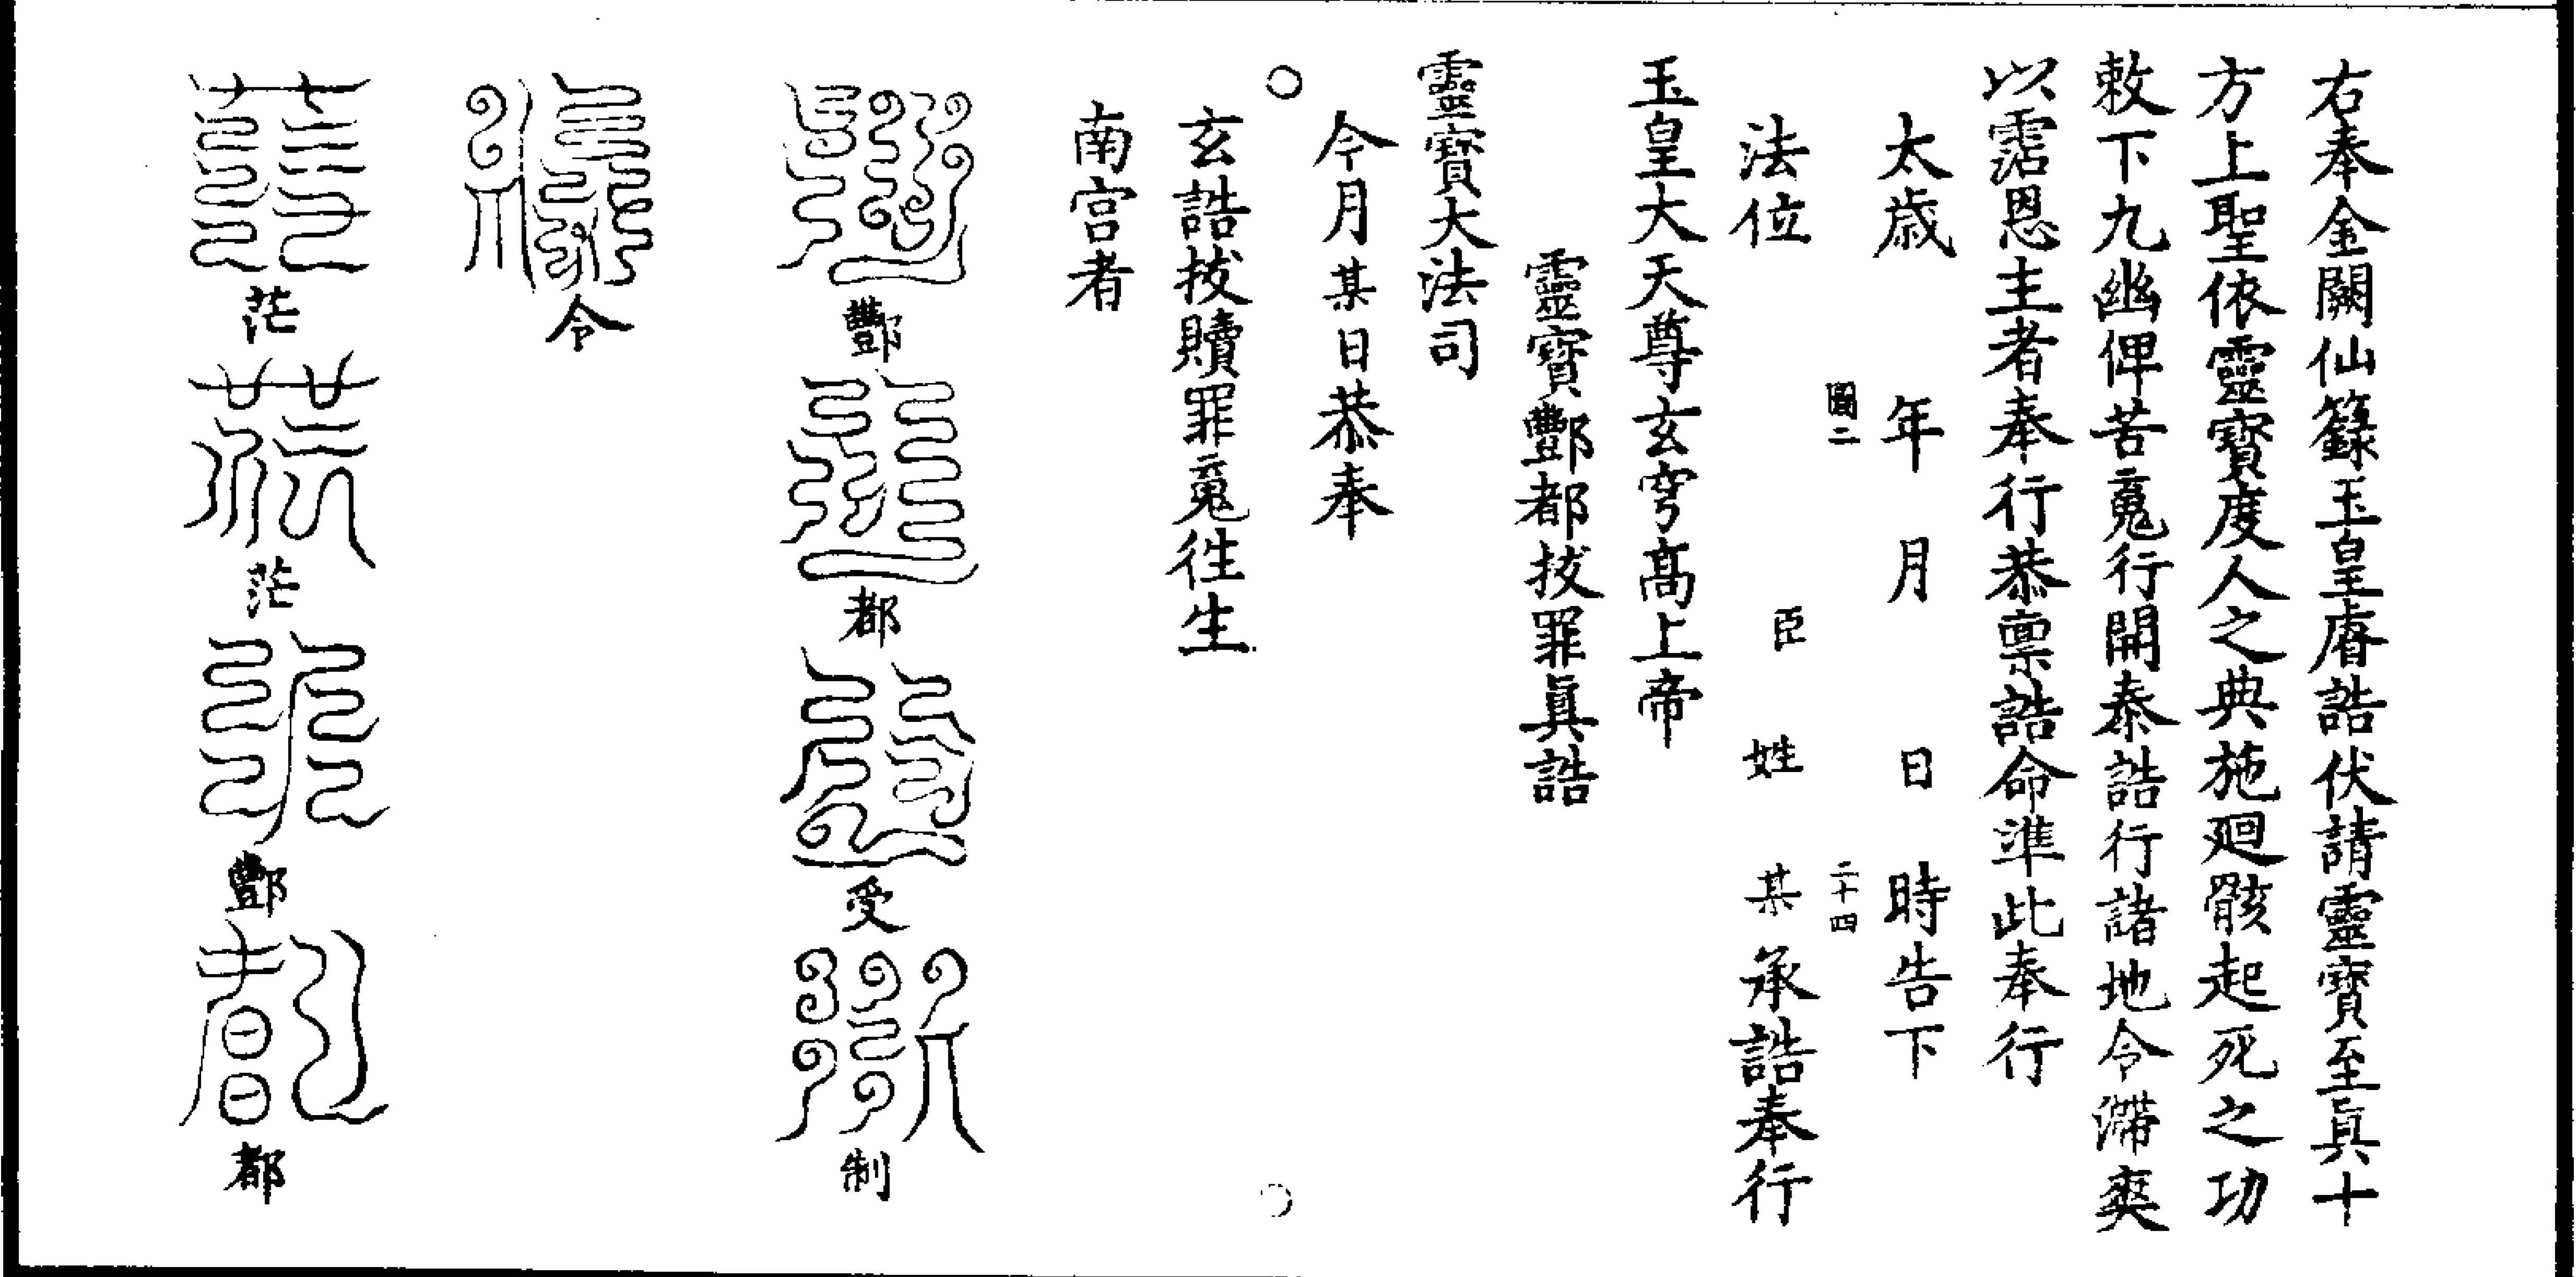 右奉金闕仙籙玉皇睿誥伏請靈寶至眞十
方上聖依靈寶度人之典施廻骸起死之功
敕下九幽俾苦䰟行開泰誥行諸地令滯爽
以霑恩主者奉行恭禀誥命準此奉行
太歲年月日時告下
圖二
二十四
法位臣姓某承誥奉行
玉皇大天尊玄穹髙上帝
靈寶酆都拔罪眞誥
靈寶大法司
今月某日恭奉
玄誥拔贖罪䰟徃生
南宮者
酆都受制
令
茫茫酆都